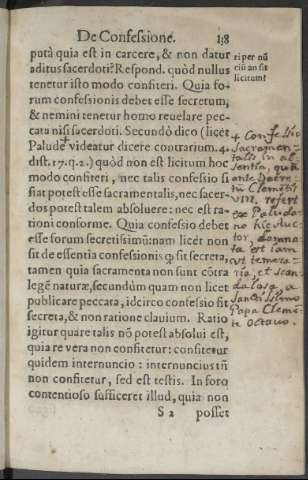 De Confessione. 138
putà quia est in carcere, & non datur
aditus sacerdoti? Respond. quòd nullus
tenetur isto modo confiteri. Quia fo-
rum confessionis debet esse secretum,
& nemini tenetur homo reuelare pec-
cata nisi sacerdoti. Secundò dico (licet
Palude videatur dicere contrarium. 4.
dist. 17. q. 2.) quòd non est licitum hoc
modo confiteri, nec talis confessio si
fiat potest esse sacramentalis, nec sacer-
dos potest talem absoluere: nec est ra-
tioni conforme. Quia confessio debet
esse forum secretissimũ: nam licèt non
sit de essentia confessionis ꝙ sit secreta,
tamen quia sacramenta non sunt cõtra
legẽ naturæ, secundùm quam non licet
publicare peccata, idcirco confessio sit
secreta, & non ratione clauium. Ratio
igitur quare talis nõ potest absolui est,
quia re vera non confitetur: confitetur
quidem internuncio: internuncius tñ
non confitetur, sed est testis. In foro
contentioso sufficeret illud, quia non
S 2 posset
ri per nũ
ciũ an sit
licitum?
+ Confessio
Sacramen-
talis in ab-
sentia, quã
ante Decre-
tũ Clemẽtis
VIII. refert
ex Paludano
hic Auc-
tor, damna-
ta est iam
ut temera-
ria, et scan-
dalosa a
Sanctissimo
Papa Clemẽ-
te Octauo.